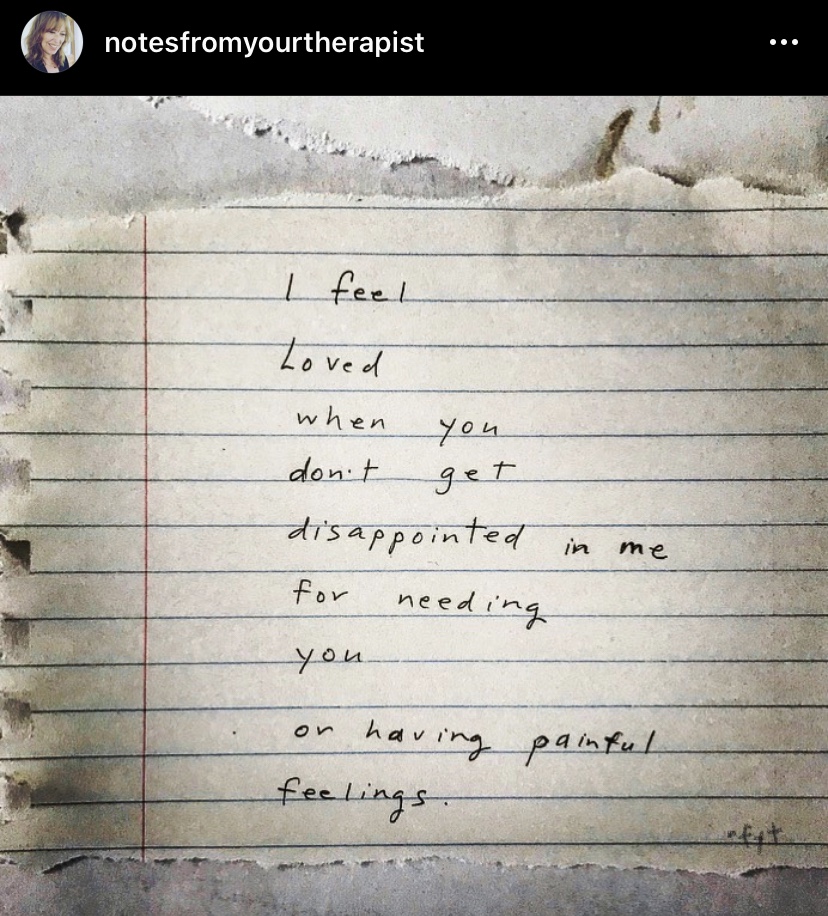 notesfromyourtherapist
I feel
Loved
when you
don't get
disappointed in me
for needing
you
or having painful
feelings.
nfyt